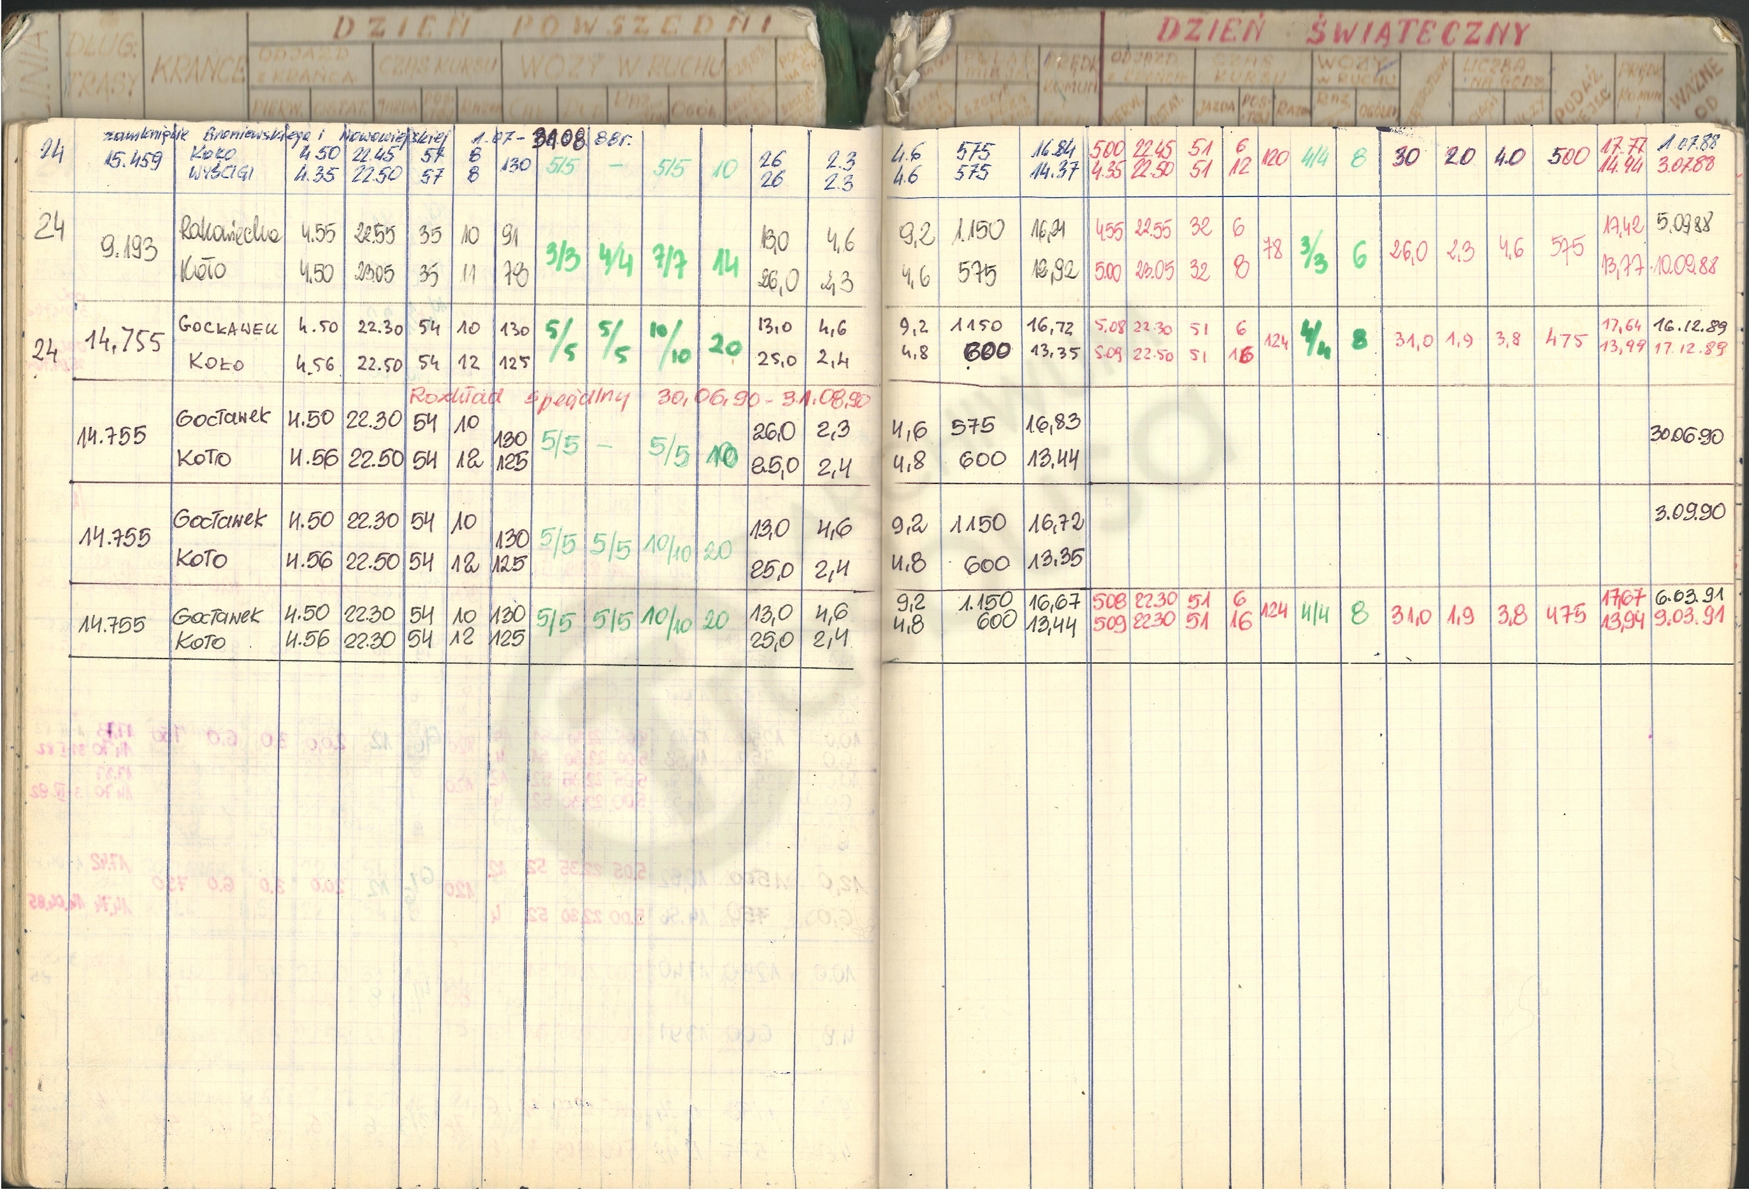 DZIEŃ POWSZEDNI DZIEŃ ŚWIĄTECZNY
LINIA DŁUG. TRASY KRAŃCE ODJAZD Z KRAŃCA CZAS KURSU WOZY W RUCHU
WAŻNE OD
zamknięcie Broniewskiego i Nowowiejskiej 1.07-31.08.88r.
24 15.459 KOŁO 4.50 22.45 57 8 130 5/5 — 5/5 10 26 2.3 4.6 575 16.84 500 22.45 51 6 120 4/4 8 30 2.0 4.0 500 17.77 1.07.88
WYŚCIGI 4.35 22.50 57 8 26 2.3 4.6 575 14.37 4.35 22.50 51 12 14.94 3.07.88
24 9.193 Rakowiecka 4.55 22.55 35 10 91 3/3 4/4 7/7 14 13,0 4,6 9,2 1.150 16,21 455 22.55 32 6 78 3/3 6 26,0 2,3 4,6 575 17,42 5.09.88
Koło 4.50 23.05 35 11 78 26,0 2,3 4,6 575 12,92 500 23.05 32 8 13,77 10.09.88
24 14,755 GOCŁAWEK 4.50 22.30 54 10 130 5/5 5/5 10/10 20 13,0 4,6 9,2 1150 16,72 5.08 22.30 51 6 124 4/4 8 31,0 1,9 3,8 475 17,64 16.12.89
KOŁO 4.56 22.50 54 12 125 25,0 2,4 4,8 600 13,35 5.09 22.50 51 16 13,99 17.12.89
Rozkład specjalny 30.06.90-31.08.90
14.755 Gocławek 4.50 22.30 54 10 130 5/5 — 5/5 10 26,0 2,3 4,6 575 16,83 30.06.90
KOŁO 4.56 22.50 54 12 125 25,0 2,4 4,8 600 13,44
14.755 Gocławek 4.50 22.30 54 10 130 5/5 5/5 10/10 20 13,0 4,6 9,2 1150 16,72 3.09.90
KOŁO 4.56 22.50 54 12 125 25,0 2,4 4,8 600 13,35
14.755 Gocławek 4.50 22.30 54 10 130 5/5 5/5 10/10 20 13,0 4,6 9,2 1.150 16,67 508 22.30 51 6 124 4/4 8 31,0 1,9 3,8 475 17,67 6.03.91
KOŁO 4.56 22.30 54 12 125 25,0 2,4 4,8 600 13,44 509 22.30 51 16 13,94 9.03.91